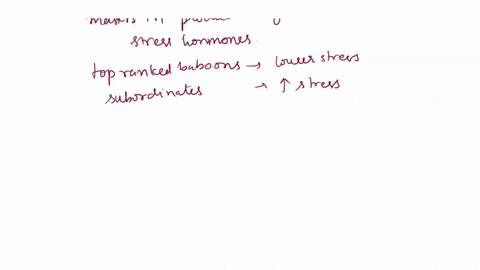 stress hormones.
top ranked baboons → lower stress
subordinates → ↑ stress